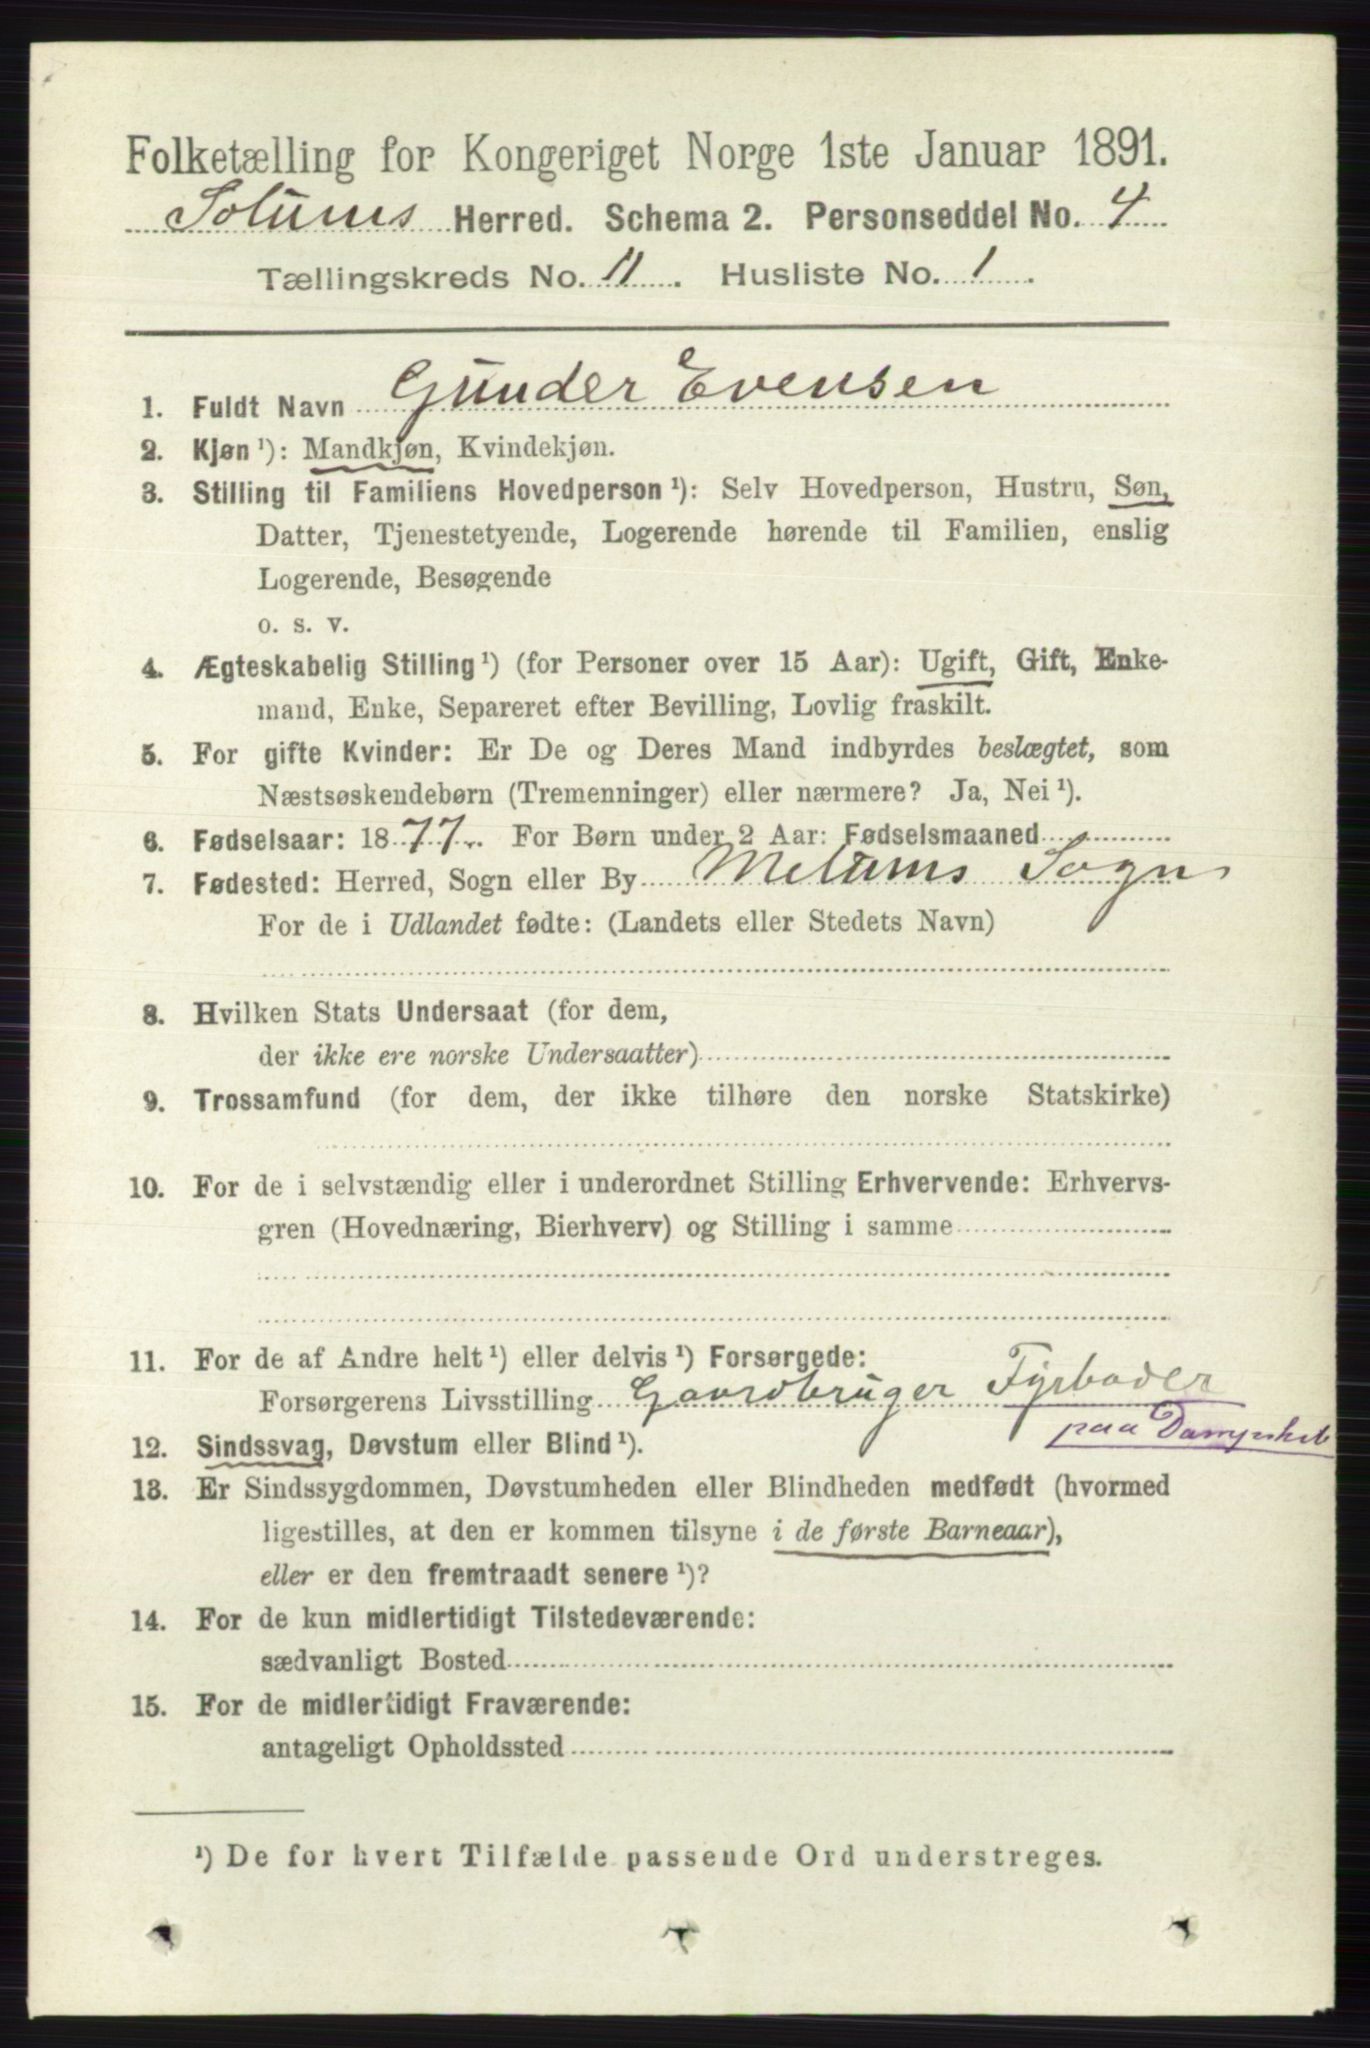 Folketælling for Kongeriget Norge 1ste Januar 1891.
Solums Herred. Schema 2. Personseddel No. 4
Tællingskreds No. 11. Husliste No. 1.
1. Fuldt Navn Gunder Evensen
2. Kjøn ¹): Mandkjøn, Kvindekjøn.
3. Stilling til Familiens Hovedperson ¹): Selv Hovedperson, Hustru, Søn,
Datter, Tjenestetyende, Logerende hørende til Familien, enslig
Logerende, Besøgende
o. s. v.
4. Ægteskabelig Stilling ¹) (for Personer over 15 Aar): Ugift, Gift, Enke-
mand, Enke, Separeret efter Bevilling, Lovlig fraskilt.
5. For gifte Kvinder: Er De og Deres Mand indbyrdes beslægtet, som
Næstsøskendebørn (Tremenninger) eller nærmere? Ja, Nei ¹).
6. Fødselsaar: 1877. For Børn under 2 Aar: Fødselsmaaned
7. Fødested: Herred, Sogn eller By Melums Sogn
For de i Udlandet fødte: (Landets eller Stedets Navn)
8. Hvilken Stats Undersaat (for dem,
der ikke ere norske Undersaatter)
9. Trossamfund (for dem, der ikke tilhøre den norske Statskirke)
10. For de i selvstændig eller i underordnet Stilling Erhvervende: Erhvervs-
gren (Hovednæring, Bierhverv) og Stilling i samme
11. For de af Andre helt ¹) eller delvis ¹) Forsørgede:
Forsørgerens Livsstilling Gaardbruger Fyrbøder
paa Dampskib
12. Sindssvag, Døvstum eller Blind ¹).
13. Er Sindssygdommen, Døvstumheden eller Blindheden medfødt (hvormed
ligestilles, at den er kommen tilsyne i de første Barneaar),
eller er den fremtraadt senere ¹)?
14. For de kun midlertidigt Tilstedeværende:
sædvanligt Bosted
15. For de midlertidigt Fraværende:
antageligt Opholdssted
¹) De for hvert Tilfælde passende Ord understreges.